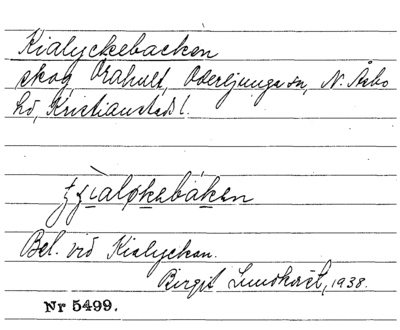 Kialyckebacken
skog, Orahult, Oderljunga sn, N. Åsbo
hd, Kristianstads l.
tʃialøkebakan
Bel. vid Kialyckan.
Birgit Lundkvist, 1938.
Nr 5499.